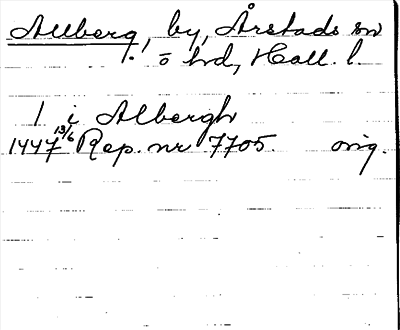 Allberg, by, Årstads sn
o hd, Hall. l.
1 i Albergh
1447 13/6 Rep. nr 7705. orig.